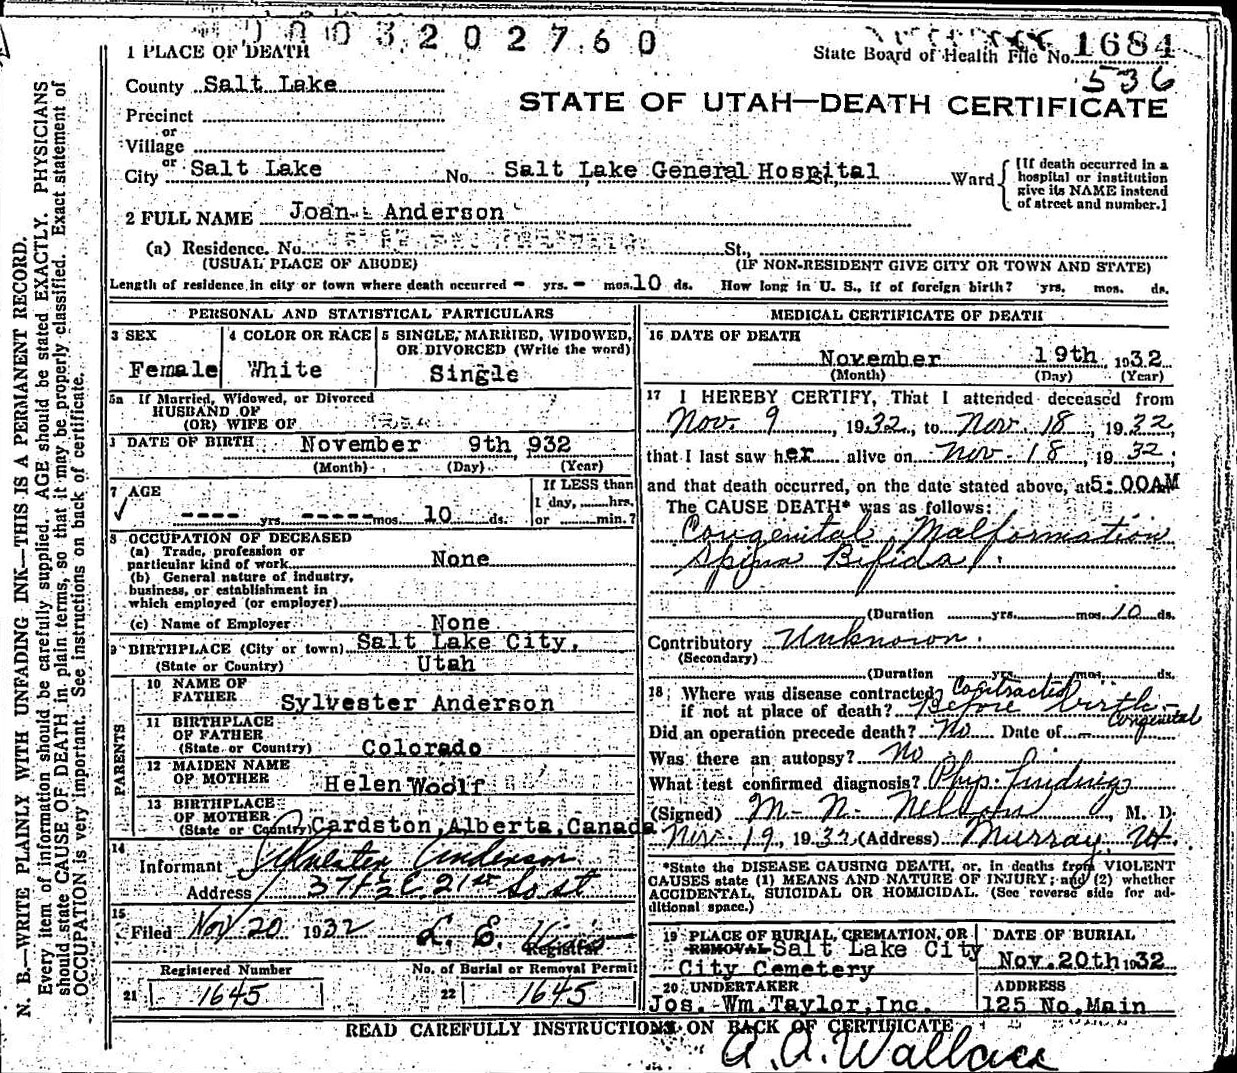 0003202760
1 PLACE OF DEATH
State Board of Health File No. 1684
536
County Salt Lake
STATE OF UTAH—DEATH CERTIFICATE
Precinct
or
Village
or
City Salt Lake No. Salt Lake General Hospital Ward
[If death occurred in a hospital or institution give its NAME instead of street and number.]
2 FULL NAME Joan Anderson
(a) Residence. No. St.,
(USUAL PLACE OF ABODE) (IF NON-RESIDENT GIVE CITY OR TOWN AND STATE)
Length of residence in city or town where death occurred - yrs. - mos. 10 ds. How long in U. S., if of foreign birth? yrs. mos. ds.
PERSONAL AND STATISTICAL PARTICULARS
3 SEX
Female
4 COLOR OR RACE
White
5 SINGLE, MARRIED, WIDOWED, OR DIVORCED (Write the word)
Single
5a If Married, Widowed, or Divorced
HUSBAND OF
(OR) WIFE OF
DATE OF BIRTH November 9th, 932
(Month) (Day) (Year)
7 AGE
---- yrs. ----- mos. 10 ds.
If LESS than
1 day, hrs.
or min.?
8 OCCUPATION OF DECEASED
(a) Trade, profession or
particular kind of work None
(b) General nature of industry,
business, or establishment in
which employed (or employer)
(c) Name of Employer None
9 BIRTHPLACE (City or town) Salt Lake City,
(State or Country) Utah
PARENTS
10 NAME OF FATHER Sylvester Anderson
11 BIRTHPLACE OF FATHER
(State or Country) Colorado
12 MAIDEN NAME OF MOTHER Helen Woolf
13 BIRTHPLACE OF MOTHER
(State or Country) Cardston, Alberta, Canada
14
Informant Sylvester Anderson
Address E 21st So st
15
Filed Nov 20 1932 L. E.
Registrar
Registered Number
21 1645
No. of Burial or Removal Permit
22 1645
MEDICAL CERTIFICATE OF DEATH
16 DATE OF DEATH
November 19th 1932
(Month) (Day) (Year)
17 I HEREBY CERTIFY, That I attended deceased from
Nov. 9, 1932, to Nov. 18, 1932,
that I last saw her alive on Nov. 18, 1932;
and that death occurred, on the date stated above, at 5:00AM
The CAUSE DEATH* was as follows:
Congenital Malformation
Spina Bifida.
(Duration yrs. mos. 10 ds.
Contributory Unknown.
(Secondary)
(Duration yrs. mos. ds.
18 Where was disease contracted Contracted
if not at place of death? Before birth-
Congenital
Did an operation precede death? No Date of
Was there an autopsy? No
What test confirmed diagnosis? Phys. findings
(Signed) M. N. Nelson, M. D.
Nov. 19, 1932 (Address) Murray, Ut.
*State the DISEASE CAUSING DEATH, or, in deaths from VIOLENT
CAUSES state (1) MEANS AND NATURE OF INJURY; and (2) whether
ACCIDENTAL, SUICIDAL OR HOMICIDAL. (See reverse side for ad-
ditional space.)
19 PLACE OF BURIAL, CREMATION, OR
REMOVAL Salt Lake City
City Cemetery
DATE OF BURIAL
Nov. 20th 1932
20 UNDERTAKER
Jos. Wm. Taylor, Inc.
ADDRESS
125 No. Main
READ CAREFULLY INSTRUCTIONS ON BACK OF CERTIFICATE
A. A. Wallace
N. B.—WRITE PLAINLY WITH UNFADING INK—THIS IS A PERMANENT RECORD.
Every item of information should be carefully supplied. AGE should be stated EXACTLY. PHYSICIANS
should state CAUSE OF DEATH in plain terms, so that it may be properly classified. Exact statement of
OCCUPATION is very important. See instructions on back of certificate.